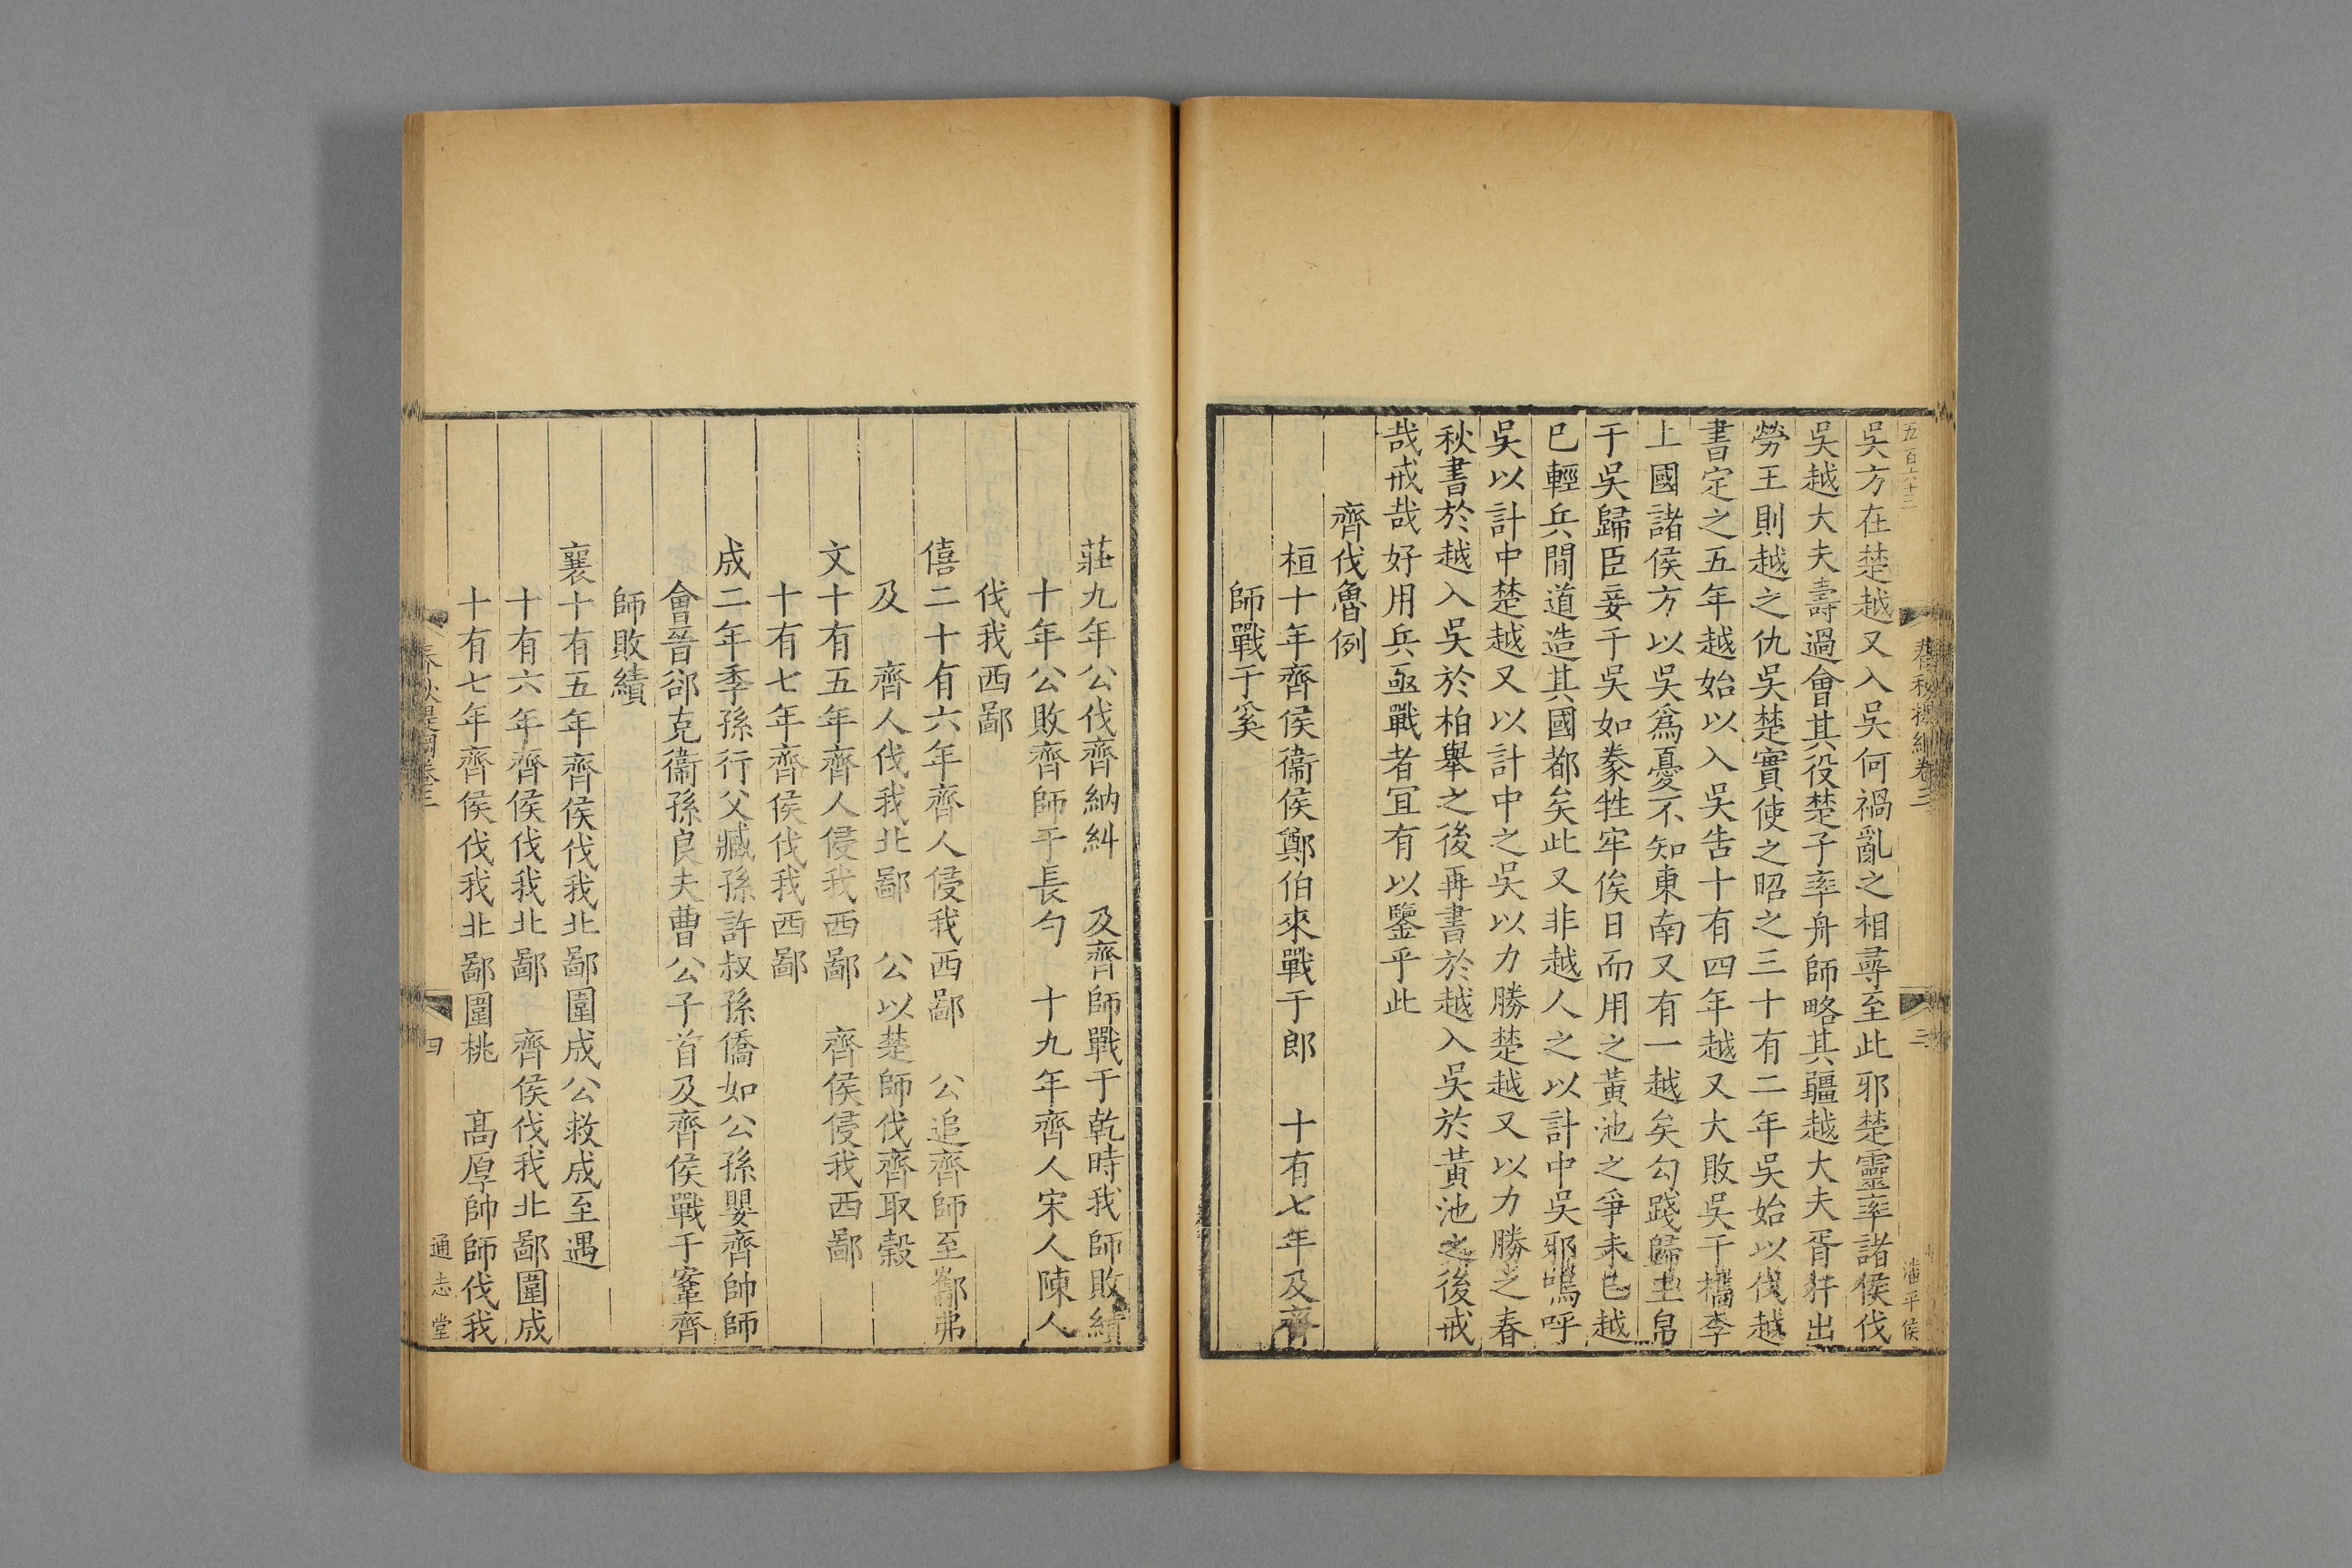 五百六十二
春秋提綱卷三
三
潘平侯
吳方在楚越又入吳何禍亂之相尋至此邪楚靈率諸侯伐
吳越大夫壽過會其役楚子率舟師略其疆越大夫胥犴出
勞王則越之仇吳楚實使之昭之三十有二年吳始以伐越
書定之五年越始以入吳告十有四年越又大敗吳于檇李
上國諸侯方以吳爲憂不知東南又有一越矣勾踐歸玉帛
于吳歸臣妾于吳如豢牲牢俟日而用之黃池之爭未已越
已輕兵間道造其國都矣此又非越人之以計中吳邪嗚呼
吳以計中楚越又以計中之吳以力勝楚越又以力勝之春
秋書於越入吳於柏舉之後再書於越入吳於黃池之後戒
哉戒哉好用兵亟戰者宜有以鑒乎此
齊伐魯例
桓十年齊侯衞侯鄭伯來戰于郎　十有七年及齊
師戰于奚
莊九年公伐齊納糾　及齊師戰于乾時我師敗績
十年公敗齊師于長勺　十九年齊人宋人陳人
伐我西鄙
僖二十有六年齊人侵我西鄙　公追齊師至酅弗
及　齊人伐我北鄙　公以楚師伐齊取穀
文十有五年齊人侵我西鄙　齊侯侵我西鄙
十有七年齊侯伐我西鄙
成二年季孫行父臧孫許叔孫僑如公孫嬰齊帥師
會晉郤克衞孫良夫曹公子首及齊侯戰于鞌齊
師敗績
襄十有五年齊侯伐我北鄙圍成公救成至遇
十有六年齊侯伐我北鄙　齊侯伐我北鄙圍成
十有七年齊侯伐我北鄙圍桃　高厚帥師伐我
春秋提綱卷三
四
通志堂